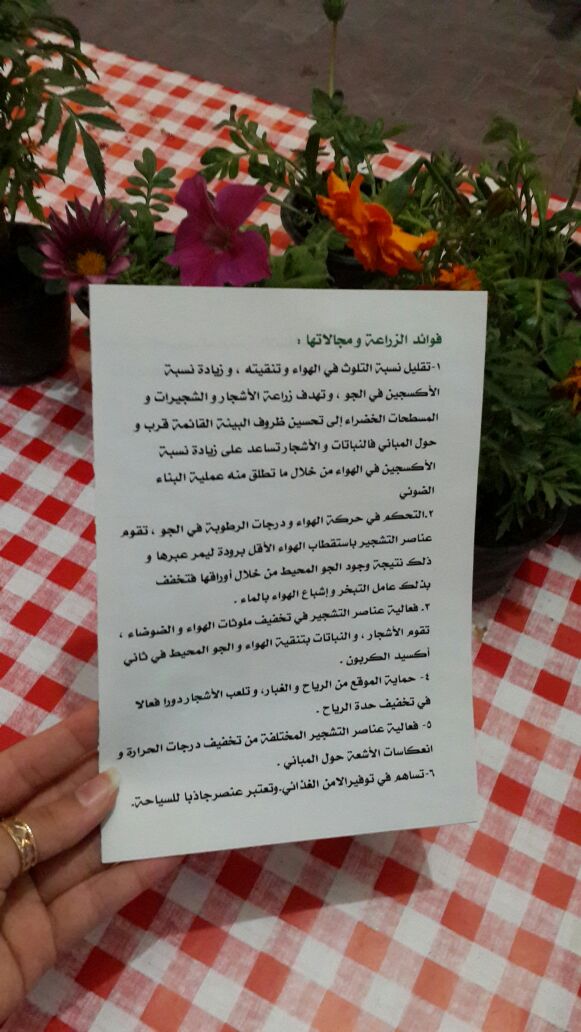 فوائد الزراعة و مجالاتها :
١-تقليل نسبة التلوث في الهواء و تنقيته ، و زيادة نسبة
الأكسجين في الجو ، و تهدف زراعة الأشجار و الشجيرات و
المسطحات الخضراء إلى تحسين ظروف البيئة القائمة قرب و
حول المباني فالنباتات و الأشجار تساعد على زيادة نسبة
الأكسجين في الهواء من خلال ما تطلق منه عملية البناء
الضوئي
٢.التحكم في حركة الهواء و درجات الرطوبة في الجو ، تقوم
عناصر التشجير باستقطاب الهواء الأقل برودة ليمر عبرها و
ذلك نتيجة وجود الجو المحيط من خلال أوراقها فتخفف
بذلك عامل التبخر و إشباع الهواء بالماء .
٣. فعالية عناصر التشجير في تخفيف ملوثات الهواء و الضوضاء ،
تقوم الأشجار ، و النباتات بتنقية الهواء و الجو المحيط في ثاني
أكسيد الكربون .
٤- حماية الموقع من الرياح و الغبار، و تلعب الأشجار دورا فعالا
في تخفيف حدة الرياح .
٥- فعالية عناصر التشجير المختلفة من تخفيف درجات الحرارة و
انعكاسات الأشعة حول المباني .
٦-تساهم في توفير الامن الغذائي.وتعتبر عنصر جاذبا للسياحة.